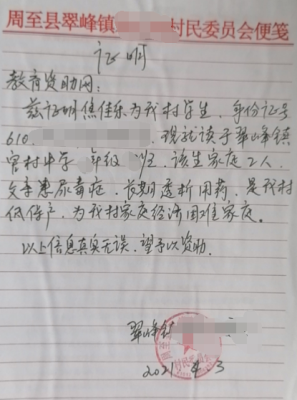 周至县翠峰镇 村民委员会便笺
证明
教育资助网:
兹证明焦佳乐为我村学生,身份证号
610. 现就读于翠峰镇
官村中学 年级 班,该生家庭2人,
父亲患尿毒症,长期透析用药,是我村
低保户,为我村家庭经济困难家庭。
以上信息真实无误,望予以资助。
翠峰镇
2021 3